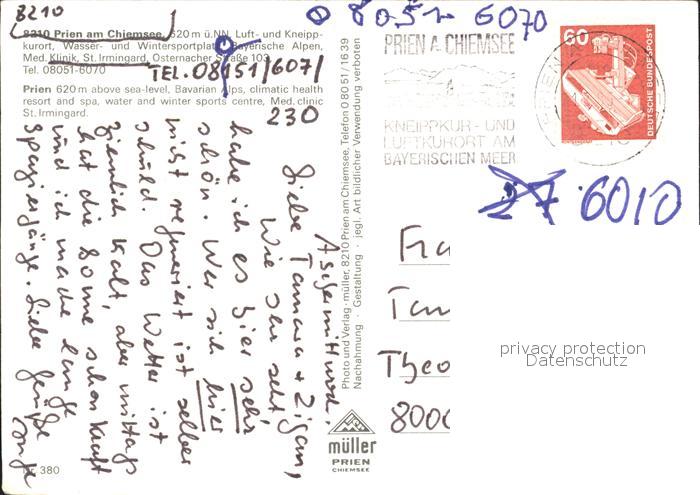 8210
0 8051 6070
8210 Prien am Chiemsee, 620 m ü.NN, Luft- und Kneipp-
kurort, Wasser- und Wintersportplatz, Bayerische Alpen,
Med. Klinik, St. Irmingard, Osternacher Straße 103,
Tel. 08051-6070
TEL. 08151/607/
230
Prien 620 m above sea-level, Bavarian Alps, climatic health
resort and spa, water and winter sports centre, Med. clinic
St. Irmingard.
Aschermittwoch.
Liebe Tamara + Zigan,
Wie Ihr seht,
habe ich es hier sehr
schön. Wer sich hier
nicht regeneriert ist selber
schuld. Das Wetter ist
ziemlich kalt, aber mittags
hat die Sonne schon Kraft
und ich mache lange
Spaziergänge. Liebe Grüße
Nr. 380
Photo und Verlag · müller, 8210 Prien am Chiemsee, Telefon 0 80 51/16 39
Nachahmung · Gestaltung · jegl. Art bildlicher Verwendung verboten
müller
PRIEN
CHIEMSEE
PRIEN A. CHIEMSEE
KNEIPPKUR- UND
LUFTKURORT AM
BAYERISCHEN MEER
PRIEN
60
DEUTSCHE BUNDESPOST
27.6010
Fra
Tam
Theo
8000
privacy protection
Datenschutz